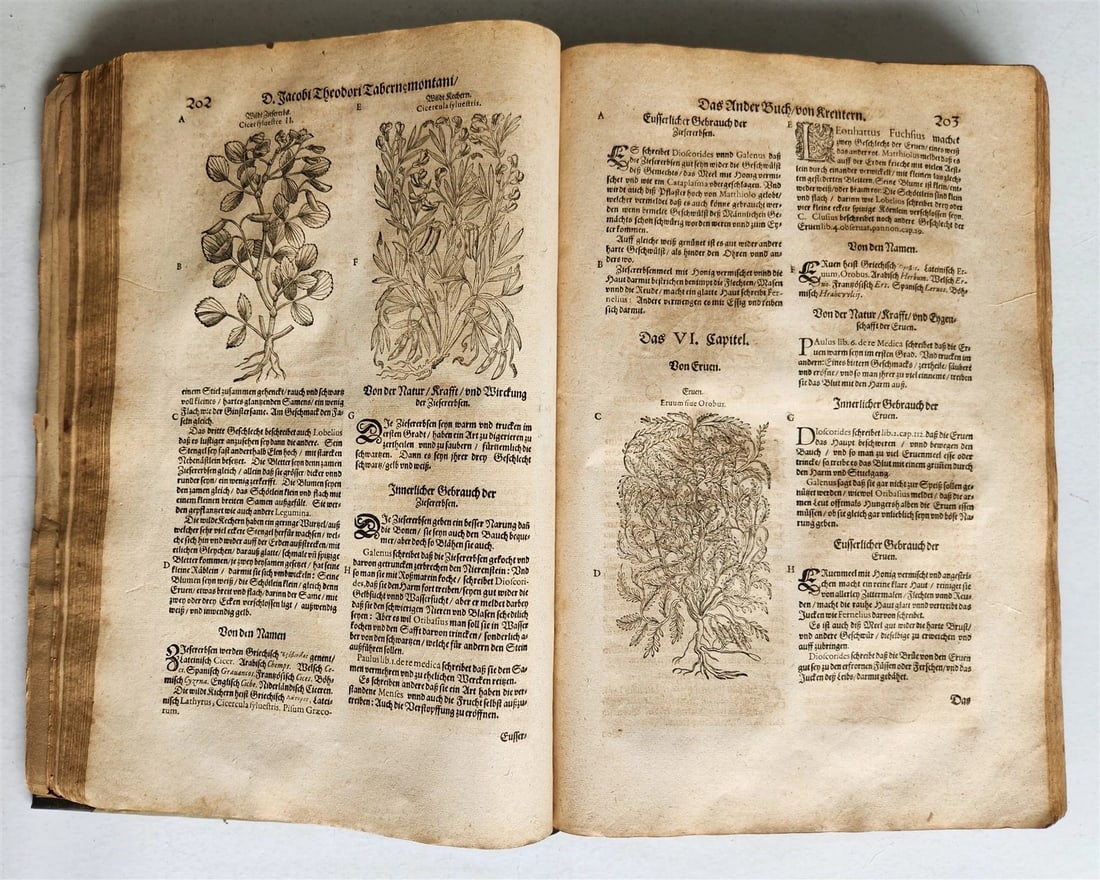 202
D. Jacobi Theodori Tabernæmontani/
A
E
Wildt Ziesererbs.
Cicer sylvestre II.
Wildt Kochern.
Cicercula sylvestris.
B
F
einem Stiel zusammen gehenckt/rauch vnd schwartz
voll kleines / hartes glantzenden Samens / ein wenig
Flach wie der Ginstersame. Am Geschmack den Fa-
seln gleich.
C
Das dritte Geschlecht beschreibet auch Lobelius
daß es lustiger anzusehen sey dann die andere. Sein
Stengel sey fast anderthalb Elen hoch / mit starcken
Nebenästlein besetzet. Die Bletter seyn denn zamen
Ziesererbsen gleich / allein daß sie grösser / dicker vnnd
runder seyn / ein wenig zerkerfft. Die Blumen seyen
den zamen gleich / das Schötlein klein vnd flach mit
einem kleinen breiten Samen außgefült. Sie wer-
den gepflantzet wie auch andere Legumina.
Die wilde Kochern haben ein geringe Wurtzel / auß
welcher sehr viel eckete Stengel herfür wachsen / wel-
che sich hin vnd wider auff der Erden außstrecken / mit
etlichen Gleychen / darauß glatte / schmale vñ spitzige
D
Bletter kommen / je zwey beysamen gesetzet / hat seine
kleine Räblein / darmit sie sich vmbwickeln: Seine
Blumen seyn weiß / die Schötlein klein / gleich denn
Eruen / etwas breit vnd flach / darinn der Same / mit
zwey oder drey Ecken verschlossen ligt / außwendig
weiß / vnd inwendig gelb.
Von den Namen
Ziesererbsen werden Griechisch genent/
Lateinisch Cicer. Arabisch Welsch Ce-
ce. Spanisch Französisch Cices. Böh-
misch Cyzrna. Englisch Niderländisch Ciceren.
Die wilde Kichern heist Griechisch Latei-
nisch Lathyrus, Cicercula sylvestris, Pisum Græco-
rum.
Von der Natur / Krafft / vnd Wirckung
der Ziesererbsen.
G
Die Ziesererbsen seyn warm vnd trucken im
ersten Gradt / haben ein Art zu digerieren zu
zertheilen vnnd zu saubern / fürnemlich die
schwartzen. Dann es seyn jhrer drey Geschlecht
schwartz / gelb vnd weiß.
Innerlicher Gebrauch der
Ziesererbsen.
Die Ziesererbsen geben ein besser Narung daß
die Bonen / sie seyn auch den Bauch beque-
mer / aber doch so Blähen sie auch.
Galenus schreibet daß die Ziesererbsen gekocht vnd
darvon getruncken zerbrechen den Nierenstein: Vnd
H
so man sie mit Roßmarein koche / schreibet Dioscori-
des, daß sie den Harm fort treiben / seyen gut wider die
Geelsucht vnnd Wassersucht / aber er meldet darbey
daß sie den schwierigen Nieren vnd Blasen schedelich
seyen: Aber es wil Oribasius man soll sie in Wasser
kochen vnd den Safft darvon trincken / sonderlich a-
ber von den schwartzen / welche für andern den Stein
außführen sollen.
Paulus lib. 1. de re medica schreibet daß sie den Sa-
men vermehren vnd zu ehelichen Wercken reitzen.
Es schreiben andere daß sie ein Art haben die ver-
standene Menses vnnd auch die Frucht selbst außzu-
treiben: Auch die Verstopffung zu eröffnen.
Eusser-
Das Ander Buch / von Kreutern.
203
A
Eusserlicher Gebrauch der
Ziesererbsen.
Es schreibet Dioscorides vnnd Galenus daß
die Ziesererbsen gut seyen wider die Geschwülst
deß Gemechts / das Meel mit Honig vermi-
schet vnd wie ein Cataplasma vbergeschlagen. Vnd
wirdt auch diß Pflaster hoch von Matthiolo gelobt /
welcher vermeldet daß es auch könne gebraucht wer-
den wenn ermelte Geschwülst deß Männlichen Ge-
mächts schon schwürig worden weren vnnd zum Ey-
ter kommen.
Auff gleiche weiß genützet ist es gut wider andere
harte Geschwülst / als hinder den Ohren vnnd an-
ders wo.
B
Ziesererbsenmeel mit Honig vermischet vnnd die
Haut darmit bestrichen benimpt die Flechten / Masen
vnnd die Reude / macht ein glatte Haut schreibt Fer-
nelius: Andere vermengen es mit Essig vnd reiben
sich darmit.
Das VI. Capitel.
Von Eruen.
Eruen.
Eruum siue Orobus.
C
D
E
Leonhartus Fuchsius machet
zwey Geschlecht der Eruen / eines weiß
das ander rot. Matthiolus meldet daß es
auff der Erden krieche mit vielen Aest-
lein durch einander verwickelt / mit kleinen langlech-
ten gefiderten Blettern. Seine Blume ist klein / ent-
weder weiß / oder braun rot. Die Schötlein sind klein
vnd flach / darinn wie Lobelius schreiben drey oder
vier kleine eckete spitzige Körnlein verschlossen seyn.
C. Clusius beschreibet noch andere Geschlecht der
Eruen lib. 4. obseruat. pannon. cap. 29.
Von den Namen.
F
Eruen heist Griechisch Lateinisch Er-
uum, Orobus. Arabisch Herbum. Welsch Er-
uo. Französisch Ers. Spanisch Böh-
misch
Von der Natur / Krafft / vnd Eygen-
schafft der Eruen.
Paulus lib. 6. de re Medica schreibet daß die Er-
uen warm seyn im ersten Grad. Vnd trucken im
andern: Eines bittern Geschmacks / zertheile / säubert
vnd eröfne / vnd so man jhrer zu viel einneme / treiben
sie das Blut mit den Harm auß.
Innerlicher Gebrauch der
Eruen.
G
Dioscorides schreibet lib. 1. cap. 112. daß die Eruen
das Haupt beschweren / vnnd bewegen den
Bauch / vnd so man zu viel Eruenmeel esse oder
trincke / so treibe es das Blut mit einem grimmen durch
den Harm vnd Stuelgang.
Galenus sagt daß sie gar nicht zur Speiß sollen ge-
nützet werden / wiewol Oribasius meldet / daß die ar-
men Leut offtmals Hungers halb die Eruen essen
müssen / ob sie gleich gar vnlieblich seyn vnd böse Na-
rung geben.
Eusserlicher Gebrauch der
Eruen.
H
Eruenmeel mit Honig vermischt vnd angestri-
chen macht ein reine klare Haut / reiniget sie
von allerley Zittermalen / Flechten vnnd Reu-
den / macht die rauhe Haut glatt vnd vertreibt das
Jucken wie Fernelius darvon schreibet.
Es ist auch diß Meel gut wider die harte Brüst /
vnd andere Geschwür / dieselbige zu erweichen vnd
auff zubringen.
Dioscorides schreibt daß die Brüe von den Eruen
gut sey zu den erfrornen Füssen oder Ferschen / vnd das
Jucken deß Leibs / darmit gebähet.
Das